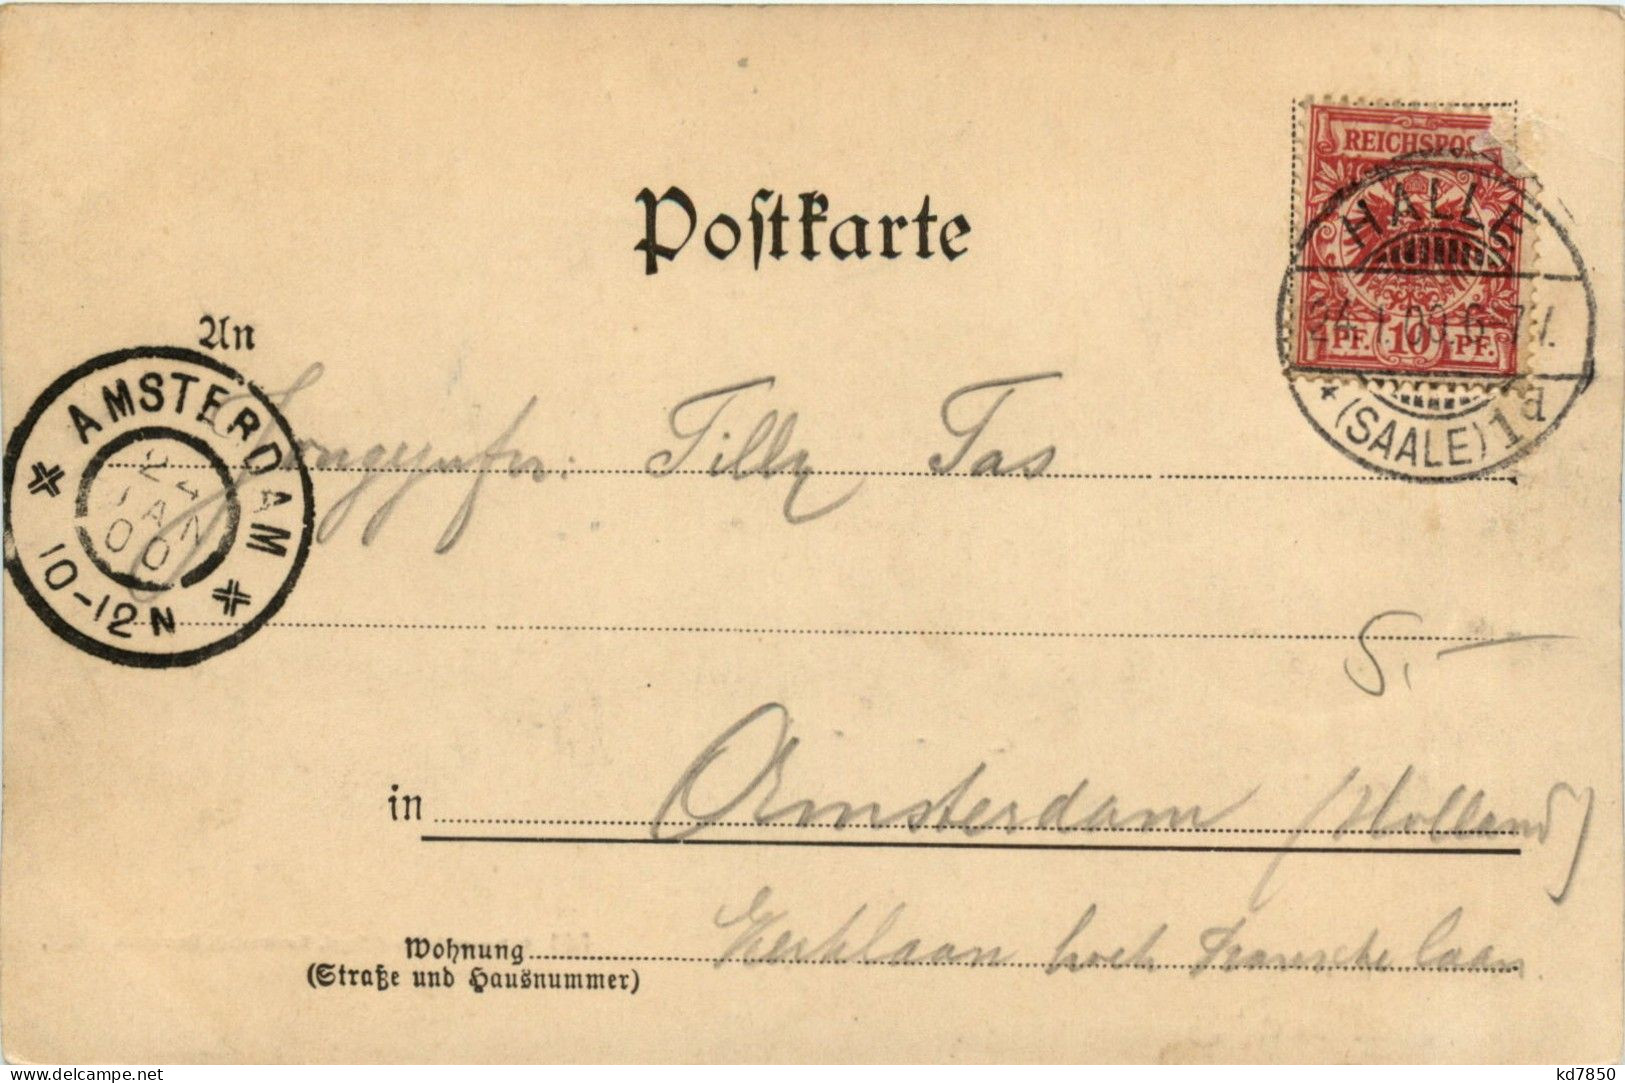 Postkarte
REICHSPOS
HALLE
24.1.00.6-7 V.
PF. 10 PF.
* (SAALE) 1d
An
AMSTERDAM
24
JAN
00
10-12 N
Tilly Tas
5.—
in Amsterdam (Holland)
Wohnung Kerklaan hoek Fransche laan.
(Straße und Hausnummer)
www.delcampe.net
kd7850